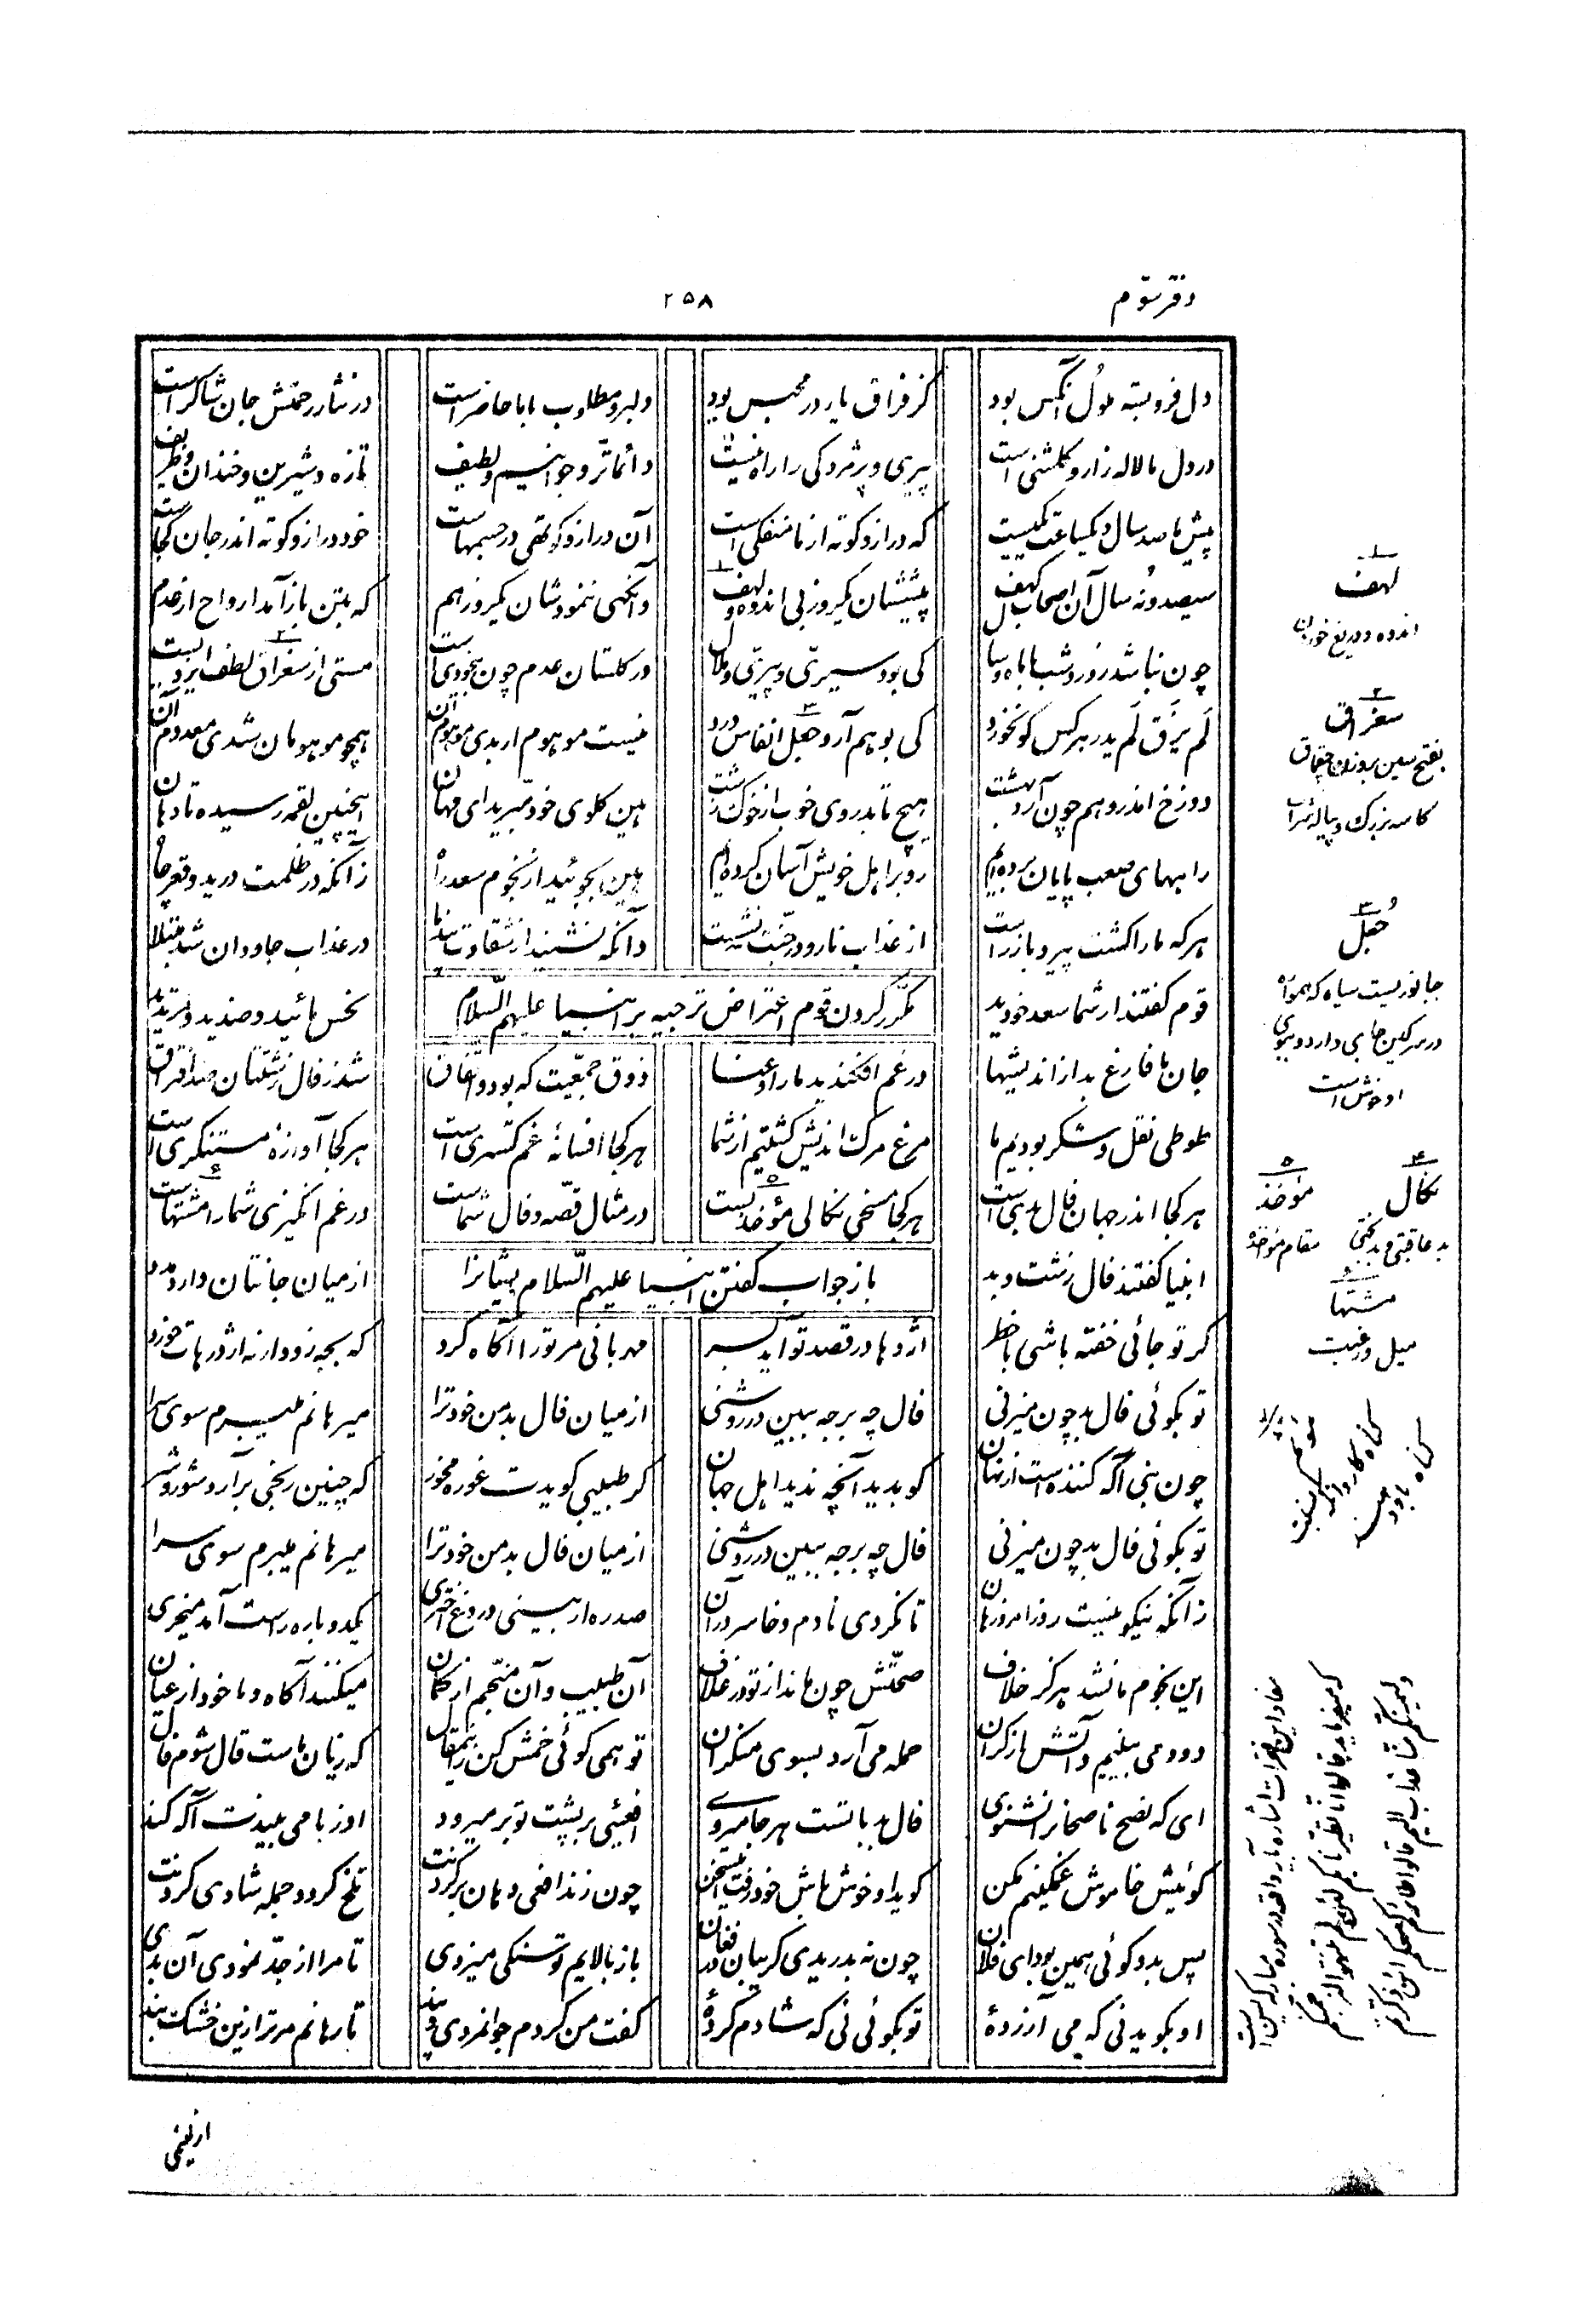 دفتر سوّم
۲۵۸
دل فرو بسته ملول آنکس بود    کز فراق یار در محبس بود    دلبر و مطلوب با ما حاضر است    در نثار رحمتش جان شاکر است
در دل ما لاله زار و گلشنی است    پیری و پژمردگی را راه نیست    دائما ترّ و جوانیم و لطیف    تازه و شیرین و خندان و ظریف
پیش ما صد سال و یکساعت یکیست    که دراز و کوته از ما منفکی است    آن دراز و کوتهی در جسمهاست    خود دراز و کوته اندر جان کجاست
سیصد و نه سال آن اصحاب کهف    پیششان یکروز بی اندوه و لهف    وآنگهی ننمودشان یکروز هم    که بتن باز آمد ارواح از عدم
چون نباشد روز و شب با ماه و سال    کی بود سیریّ و پیریّ و ملال    در گلستان عدم چون بیخودی است    مستی از سغراق لطف ایزدیست
لَم یَذُق لَم یدر هر کس کو نخورد    کی بوهم آرد جعل انفاس ورد    نیست موهوم ار بدی موهوم آن    همچو موهومان شدی معدوم آن
دوزخ اندر وهم چون آرد بهشت    هیچ تابد روی خوب از خوک زشت    هین گلوی خود مبرید ای مهان    اینچنین لقمه رسیده تا دهان
راههای صعب پایان برده‌ایم    ره بر اهل خویش آسان کرده‌ایم    هین بجوئید از نجوم سعد راه    زآنکه در ظلمت درید و قعر چاه
هر که ما را گشت پیرو باز رست    از عذاب نار و در جنّت نشست    وآنکه ننشنید از شقاوت پند ما    در عذاب جاودان شد مبتلا
مکرّر کردن قوم اعتراض ترجیه بر انبیا علیهم السّلام
قوم گفتند ار شما سعد خودید    نحس مائید و ضدید و مرتدید
جان ما فارغ بد از اندیشها    در غم افکندید ما را و عنا    ذوق جمعیّت که بود و اتّفاق    شد ز فال زشتتان صد افتراق
طوطی نقل و شکر بودیم ما    مرغ مرگ اندیش گشتیم از شما    هر کجا افسانهٔ غم گستری است    هر کجا آوازهٔ مستنکری است
هر کجا اندر جهان فال بدی است    هر کجا مسخی نکالی مؤخذیست    در مثال قصّه و فال شماست    در غم انگیزی شما را مشتهاست
باز جواب گفتن انبیا علیهم السّلام ایشانرا
انبیا گفتند فال زشت و بد    از میان جانتان دارد مدد
گر تو جائی خفته باشی با خطر    اژدها در قصد تو آید بسر    مهربانی مر تو را آگاه کرد    که بجه زود ار نه اژدرهات خورد
تو بگوئی فال بد چون میزنی    فال چه برجه ببین در روشنی    از میان فال بد من خود ترا    میرهانم میبرم سوی سرا
چون نبی آگه کننده است از نهان    کو بدید آنچه ندید اهل جهان    گر طبیبی گویدت غوره مخور    که چنین رنجی برآرد شور و شر
تو بگوئی فال بد چون میزنی    فال چه برجه ببین در روشنی    از میان فال بد من خود ترا    میرهانم میبرم سوی سرا
زآنکه نیکو نیست روز امروز هان    تا نگردی نادم و خاسر در آن    صد ره ار بینی دروغ اختری    یکدو باره راست آمد میخری
این نجوم ما نشد هرگز خلاف    صحّتش چون ماند از تو در غلاف    آن طبیب و آن منجّم از گمان    میکنند آگاه و ما خود از عیان
دود می بینیم و آتش از کران    حمله می آرد بسوی منکران    تو همی گوئی خمش کن زین مقال    که زیان ماست قال شوم فال
ای که نصح ناصحانرا نشنوی    فال بد با تست هر جا میروی    افعئی بر پشت تو بر میرود    او ز بامی بیندت آگه کند
گوئیش خاموش غمگینم مکن    گوید او خوش باش خود رفت این سخن    چون زند افعی دهان بر گردنت    تلخ گردد جمله شادی کردنت
پس بدو گوئی همین بود ای فلان    چون نه بدریدی گریبان در فغان    یا ز بالایم تو سنگی میزدی    تا مرا از جدّ نمودی آن بدی
او بگوید نی که می آزردهٔ    تو بگوئی نی که شادم کردهٔ    گفت من کردم جوانمردی و پند    تا رهانم مر ترا زین خشک بند
۱
لهف
اندوه و دریغ خوردن
۲
سغراق
بفتح سین بروزن چقماق
کاسه بزرک و پیاله شراب
۳
جُعل
جانوریست سیاه که همواره
در سرگین جای دارد و ببوی
او خوش است
۴
نکال
بد عاقبتی و بدبختی
۵
مؤخذ
مقام مؤاخذه
۶
مشتها
میل و رغبت
مفاد این فقرات اشاره بآیه واقعه در سوره مبارکه یس است
که میفرماید قالوا انا تطیرنا بکم لئن لم تنتهوا لنرجمنکم
ولیمسنکم منا عذاب الیم قالوا طائرکم معکم ائن ذکرتم
از لئیمی